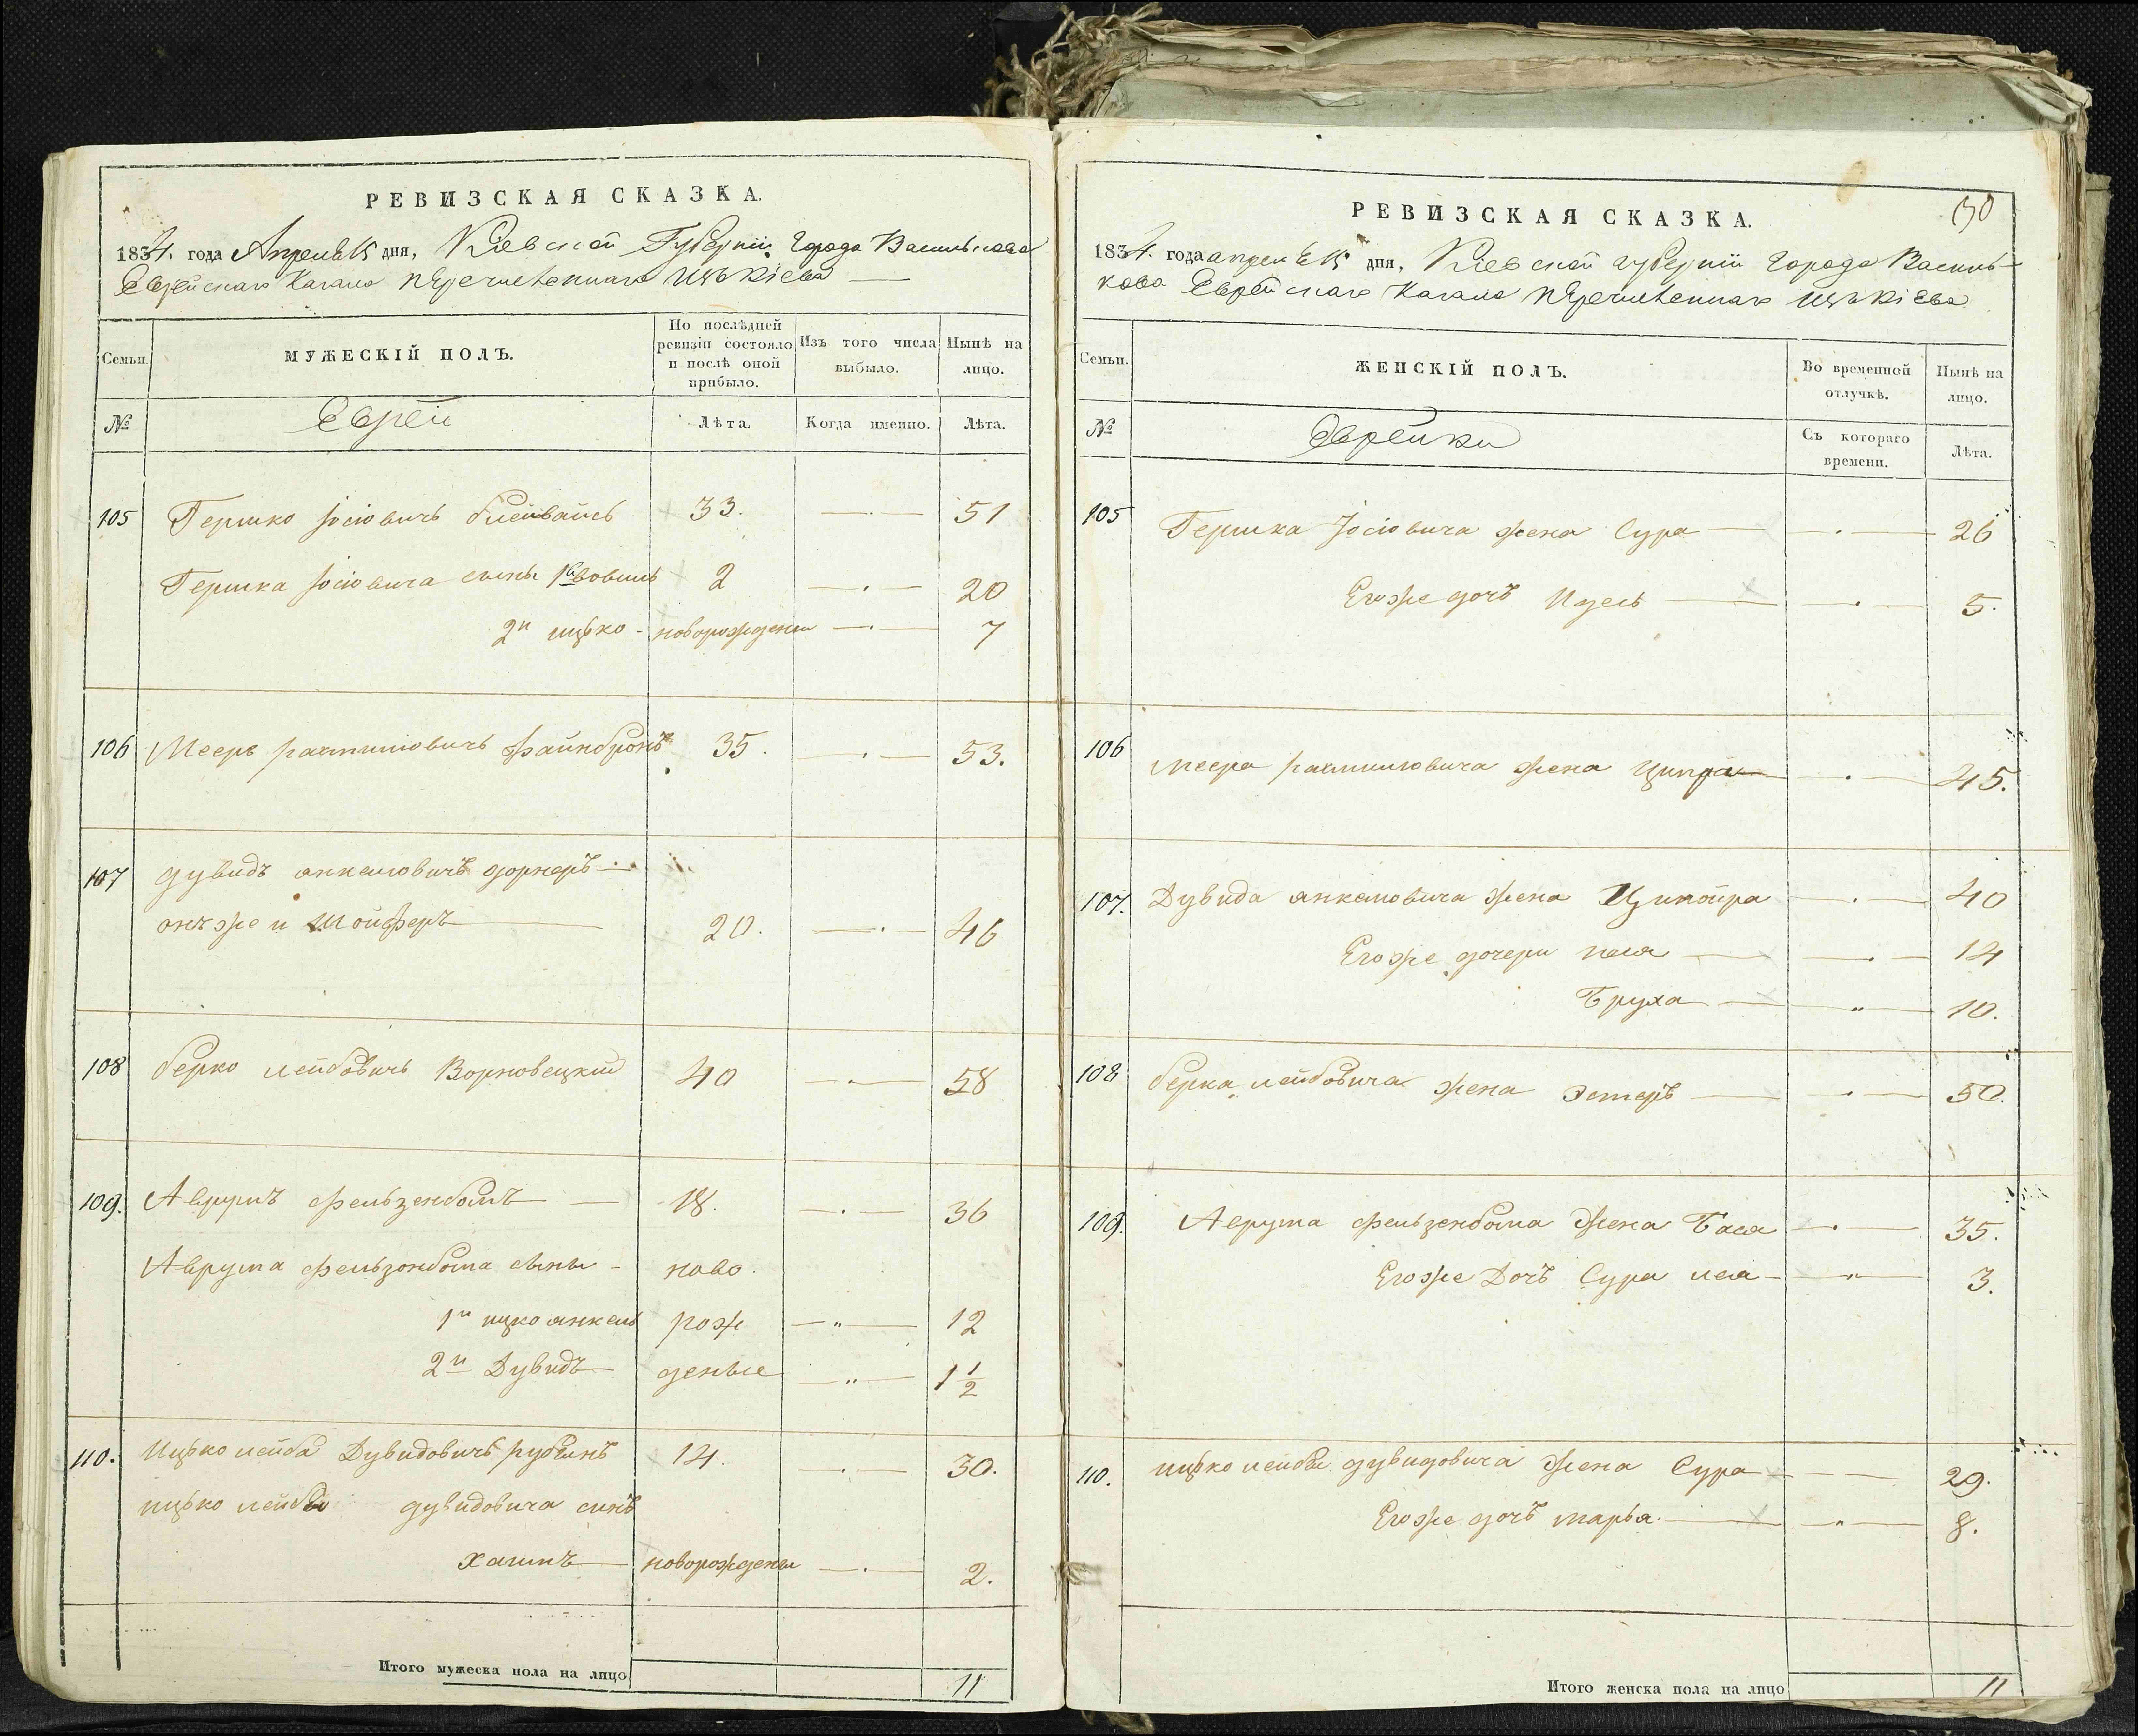 РЕВИЗСКАЯ СКАЗКА.
1834. года Апреля 15 дня, Кіевской Губерніи Города Василькова
Еврейскаго Кагала перечисленнаго изъ Кіева
Семьи.
МУЖЕСКІЙ ПОЛЪ.
По послѣдней ревизіи состояло и послѣ оной прибыло.
Изъ того числа выбыло.
Нынѣ на лицо.
№
Евреи
Лѣта.
Когда именно.
Лѣта.
105 Гершко Іосіовичь 33. 51
Гершка Іосіовича сыны 1й Вовшь 2 20
2й ицько - новорожденъ 7
106 Мееръ Рахмиловичь Файнбронъ 35. 53.
107 дувидъ анкеловичъ дорнеръ
онъ же и Шойферъ 20. 46
108 берко лейбовичь Ворновецкий 40 58
109. Аврумъ Фельзенбомъ 18. 36
Аврума Фельзонбома сыны - ново.
1й ицко анкель рож 12
2й Дувидъ деные 1 1/2
110. Ицько лейба Дувидовичь рубинъ 14. 30.
ицько лейбы дувидовича синъ
хаимъ новорожденъ 2.
Итого мужеска пола на лицо 11
РЕВИЗСКАЯ СКАЗКА.
1834. года апреля 15 дня, Кіевской губерніи Города Василь-
кова Еврейскаго Кагала перечисленнаго изъ Кіева
Семьи.
ЖЕНСКІЙ ПОЛЪ.
Во временной отлучкѣ.
Нынѣ на лицо.
№
Еврейки
Съ котораго времени.
Лѣта.
105 Гершка Іосіовича жена Сура 26
Егоже дочъ Идесь 5.
106 меера рахмиловича жена Ципра 45.
107. Дувида анкеловича жена Ципойра 40
Егоже дочери песя 14
Бруха 10.
108 берка лейбовича жена Эстеръ 50.
109. Аврума Фельзенбома Жена Бася 35.
Егоже Дочъ Сура лея - 3.
110. ицько лейбы дувидовича жена Сура 29.
Егоже дочъ марья. 8.
Итого женска пола на лицо 11